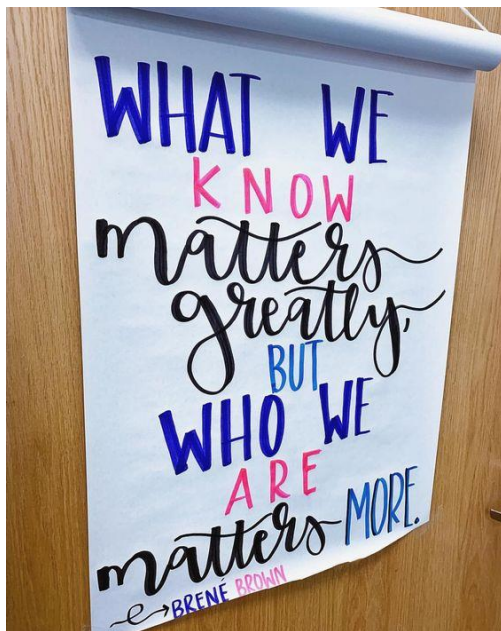 WHAT WE
KNOW
matters
greatly,
BUT
WHO WE
ARE
matters MORE.
BRENÉ BROWN